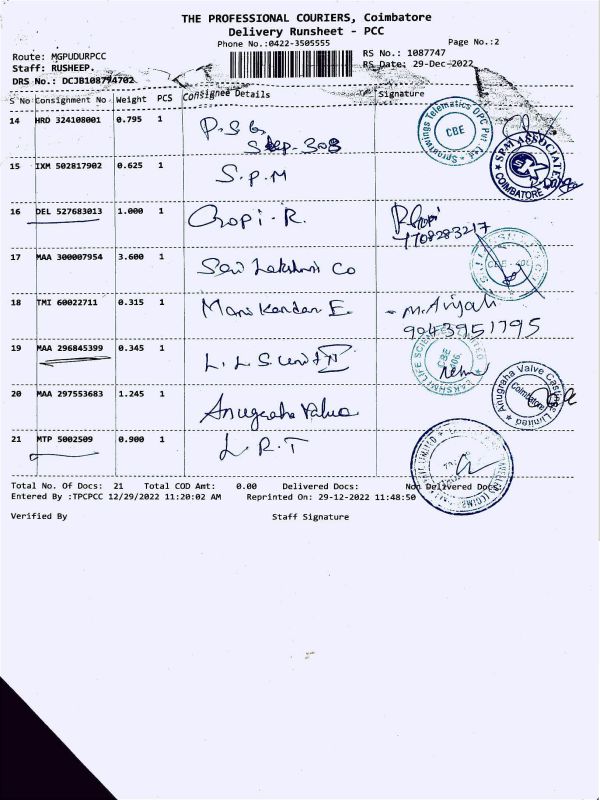 THE PROFESSIONAL COURIERS, Coimbatore
Delivery Runsheet - PCC
Phone No.:0422-3505555
Page No.:2
Route: MGPUDURPCC
RS No.: 1087747
Staff: RUSHEEP.
RS Date: 29-Dec-2022
DRS No.: DCJB108774702
S No Consignment No Weight PCS Consignee Details Signature
14 HRD 324108001 0.795 1 P.S.G.
Step-303
Sproutwings Telematics OPC Pvt. Ltd.
CBE
SPAI ASSOCIATE
COIMBATORE
15 IXM 502817902 0.625 1 S.P.M
16 DEL 527683013 1.000 1 Gopi-R. R.Gopi
7708283217
17 MAA 300007954 3.600 1 Sew Lakshmi Co
18 TMI 60022711 0.315 1 Mani Kandan E. - M.
9043951795
19 MAA 296845399 0.345 1 L.L.S. Unit II
LAKSHMI LIFE SCIENCES LIMITED
CBE
20 MAA 297553683 1.245 1 Anugraha Valve
Anugraha Valve Castings Limited
Coimbatore
21 MTP 5002509 0.900 1 L.R.T
Total No. Of Docs: 21 Total COD Amt: 0.00 Delivered Docs: Non Delivered Docs:
Entered By :TPCPCC 12/29/2022 11:20:02 AM Reprinted On: 29-12-2022 11:48:50
Verified By Staff Signature